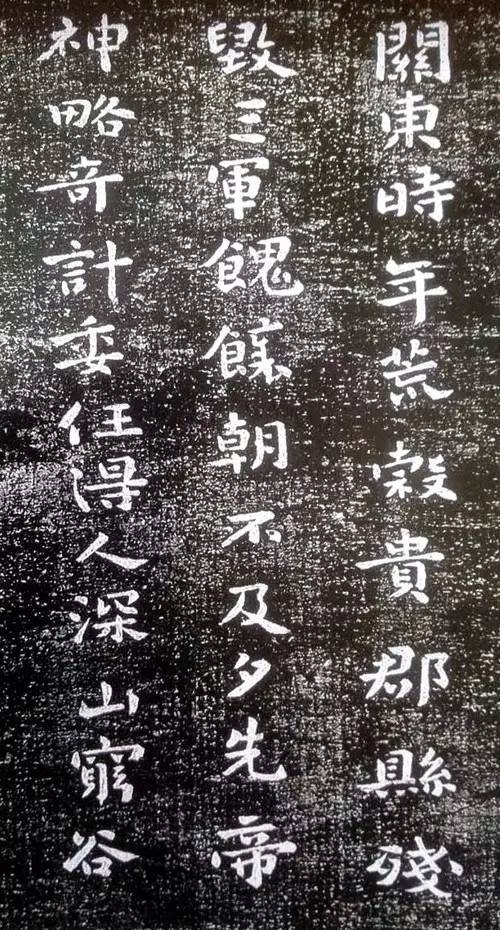 關東時年荒穀貴郡縣殘
毀三軍餽餉朝不及夕先帝
神略奇計委任得人深山窮谷